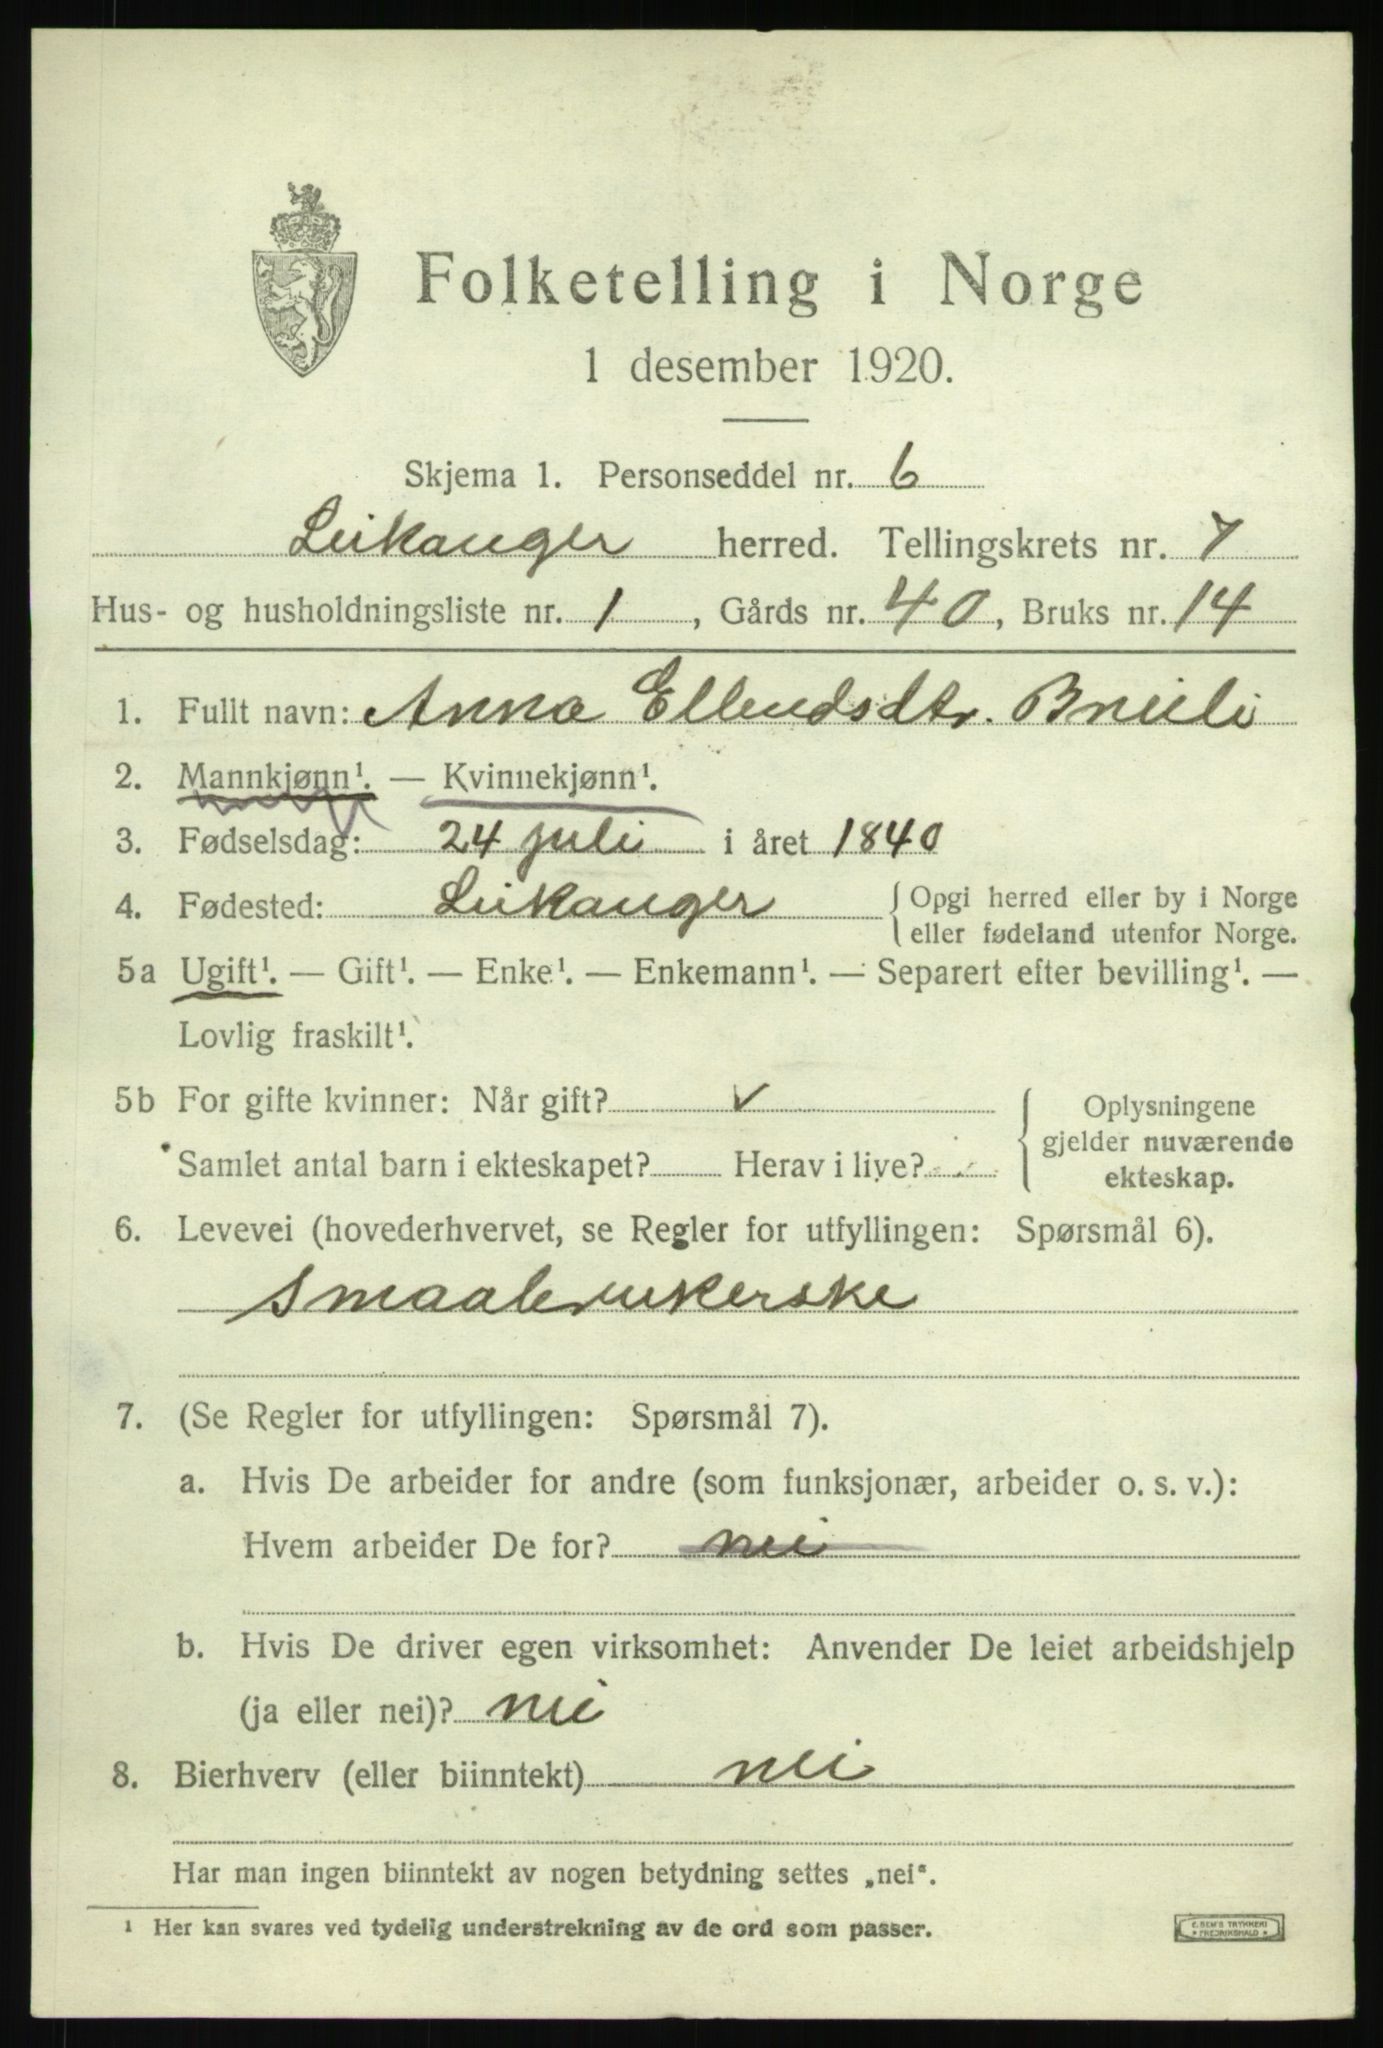 Folketelling i Norge
1 desember 1920.
Skjema 1. Personseddel nr. 6
Leikanger herred. Tellingskrets nr. 7
Hus- og husholdningsliste nr. 1, Gårds nr. 40, Bruks nr. 14
1. Fullt navn: Anna Ellendsdtr. Bneili
2. Mannkjønn¹. — Kvinnekjønn¹.
3. Fødselsdag: 24 juli i året 1840
4. Fødested: Leikanger { Opgi herred eller by i Norge
eller fødeland utenfor Norge.
5a Ugift¹. — Gift¹. — Enke¹. — Enkemann¹. — Separert efter bevilling¹. —
Lovlig fraskilt¹.
5b For gifte kvinner: Når gift? v
Samlet antal barn i ekteskapet? Herav i live?
Oplysningene
gjelder nuværende
ekteskap.
6. Levevei (hovederhvervet, se Regler for utfyllingen: Spørsmål 6).
Smaabrukerske
7. (Se Regler for utfyllingen: Spørsmål 7).
a. Hvis De arbeider for andre (som funksjonær, arbeider o. s. v.):
Hvem arbeider De for? nei
b. Hvis De driver egen virksomhet: Anvender De leiet arbeidshjelp
(ja eller nei)? nei
8. Bierhverv (eller biinntekt) nei
Har man ingen biinntekt av nogen betydning settes „nei“.
¹ Her kan svares ved tydelig understrekning av de ord som passer.
E. SEM'S TRYKKERI
* FREDRIKSHALD *